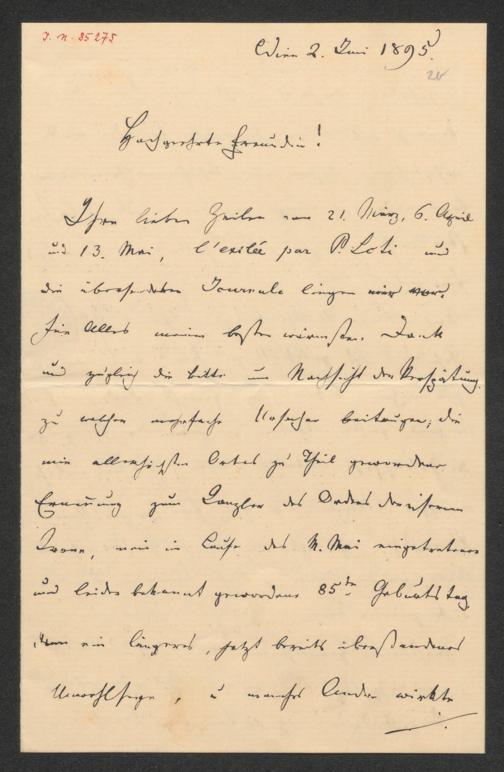 J. N. 85275
Wien 2. Juni 1895.
Hochgeehrte Freundin!
Ihre lieben Zeilen vom 21. März, 6. April
und 13. Mai, l'exilée par P. Loti und
die übersendeten Journale liegen mir vor.
Für Alles meinen besten wärmsten Dank
und zugleich die Bitte um Nachsicht der Verspätung,
zu welcher mehrfache Ursachen beitrugen; die
mir allerhöchsten Ortes zu Theil gewordene
Ernennung zum Kanzler des Ordens der eisernen
Krone, mein im Laufe des M. Mai eingetretener
und leider bekannt gewordener 85ter Geburtstag
dann ein längeres, jetzt bereits überstandenes
Unwohlsein, u manches Andere wirkte